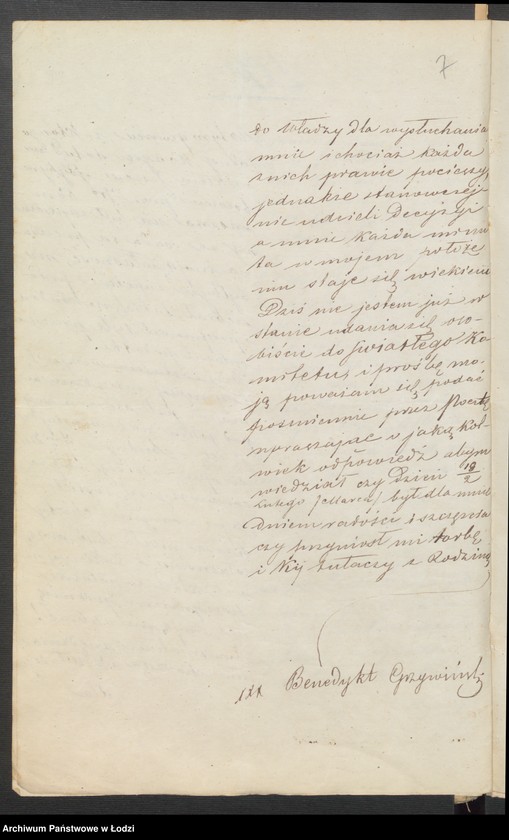 7
do Władzy dla wysłuchania
mnie i chociaż każda
z nich prawie pocieszy,
jednakże stanowczej
nie udzieli Decyzyi
a mnie każda minu
ta w mojem położe
niu staje się wiekiem
Dziś nie jestem już w
stanie udania się oso-
biście do Światłego Ko
mitetu, i prośbę mo-
ją poważam się podać
piśmiennie przez Pocztę
upraszając o jaką kol-
wiek odpowiedź abym
wiedział czy Dzień 19/2
Lutego (Marca) był dla mnie
Dniem radości i szczęścia
czy przyniósł mi torbę
i Kij tułaczy z Rodziną
xxx Benedykt
Archiwum Państwowe w Łodzi